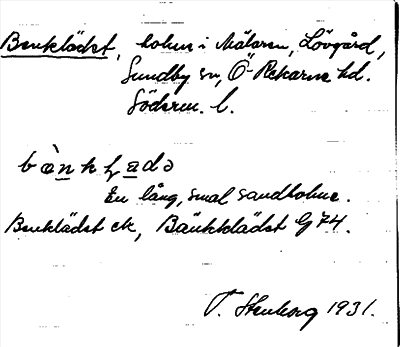 Benklädet, holme i Mälaren, Lövgård,
Sundby sn, Ö-Rekarne hd.
Söderm. l.
bänkḷadə
En lång, smal sandholme.
Benklädet ek, Bänkklädet G 74.
T. Stenborg 1931.